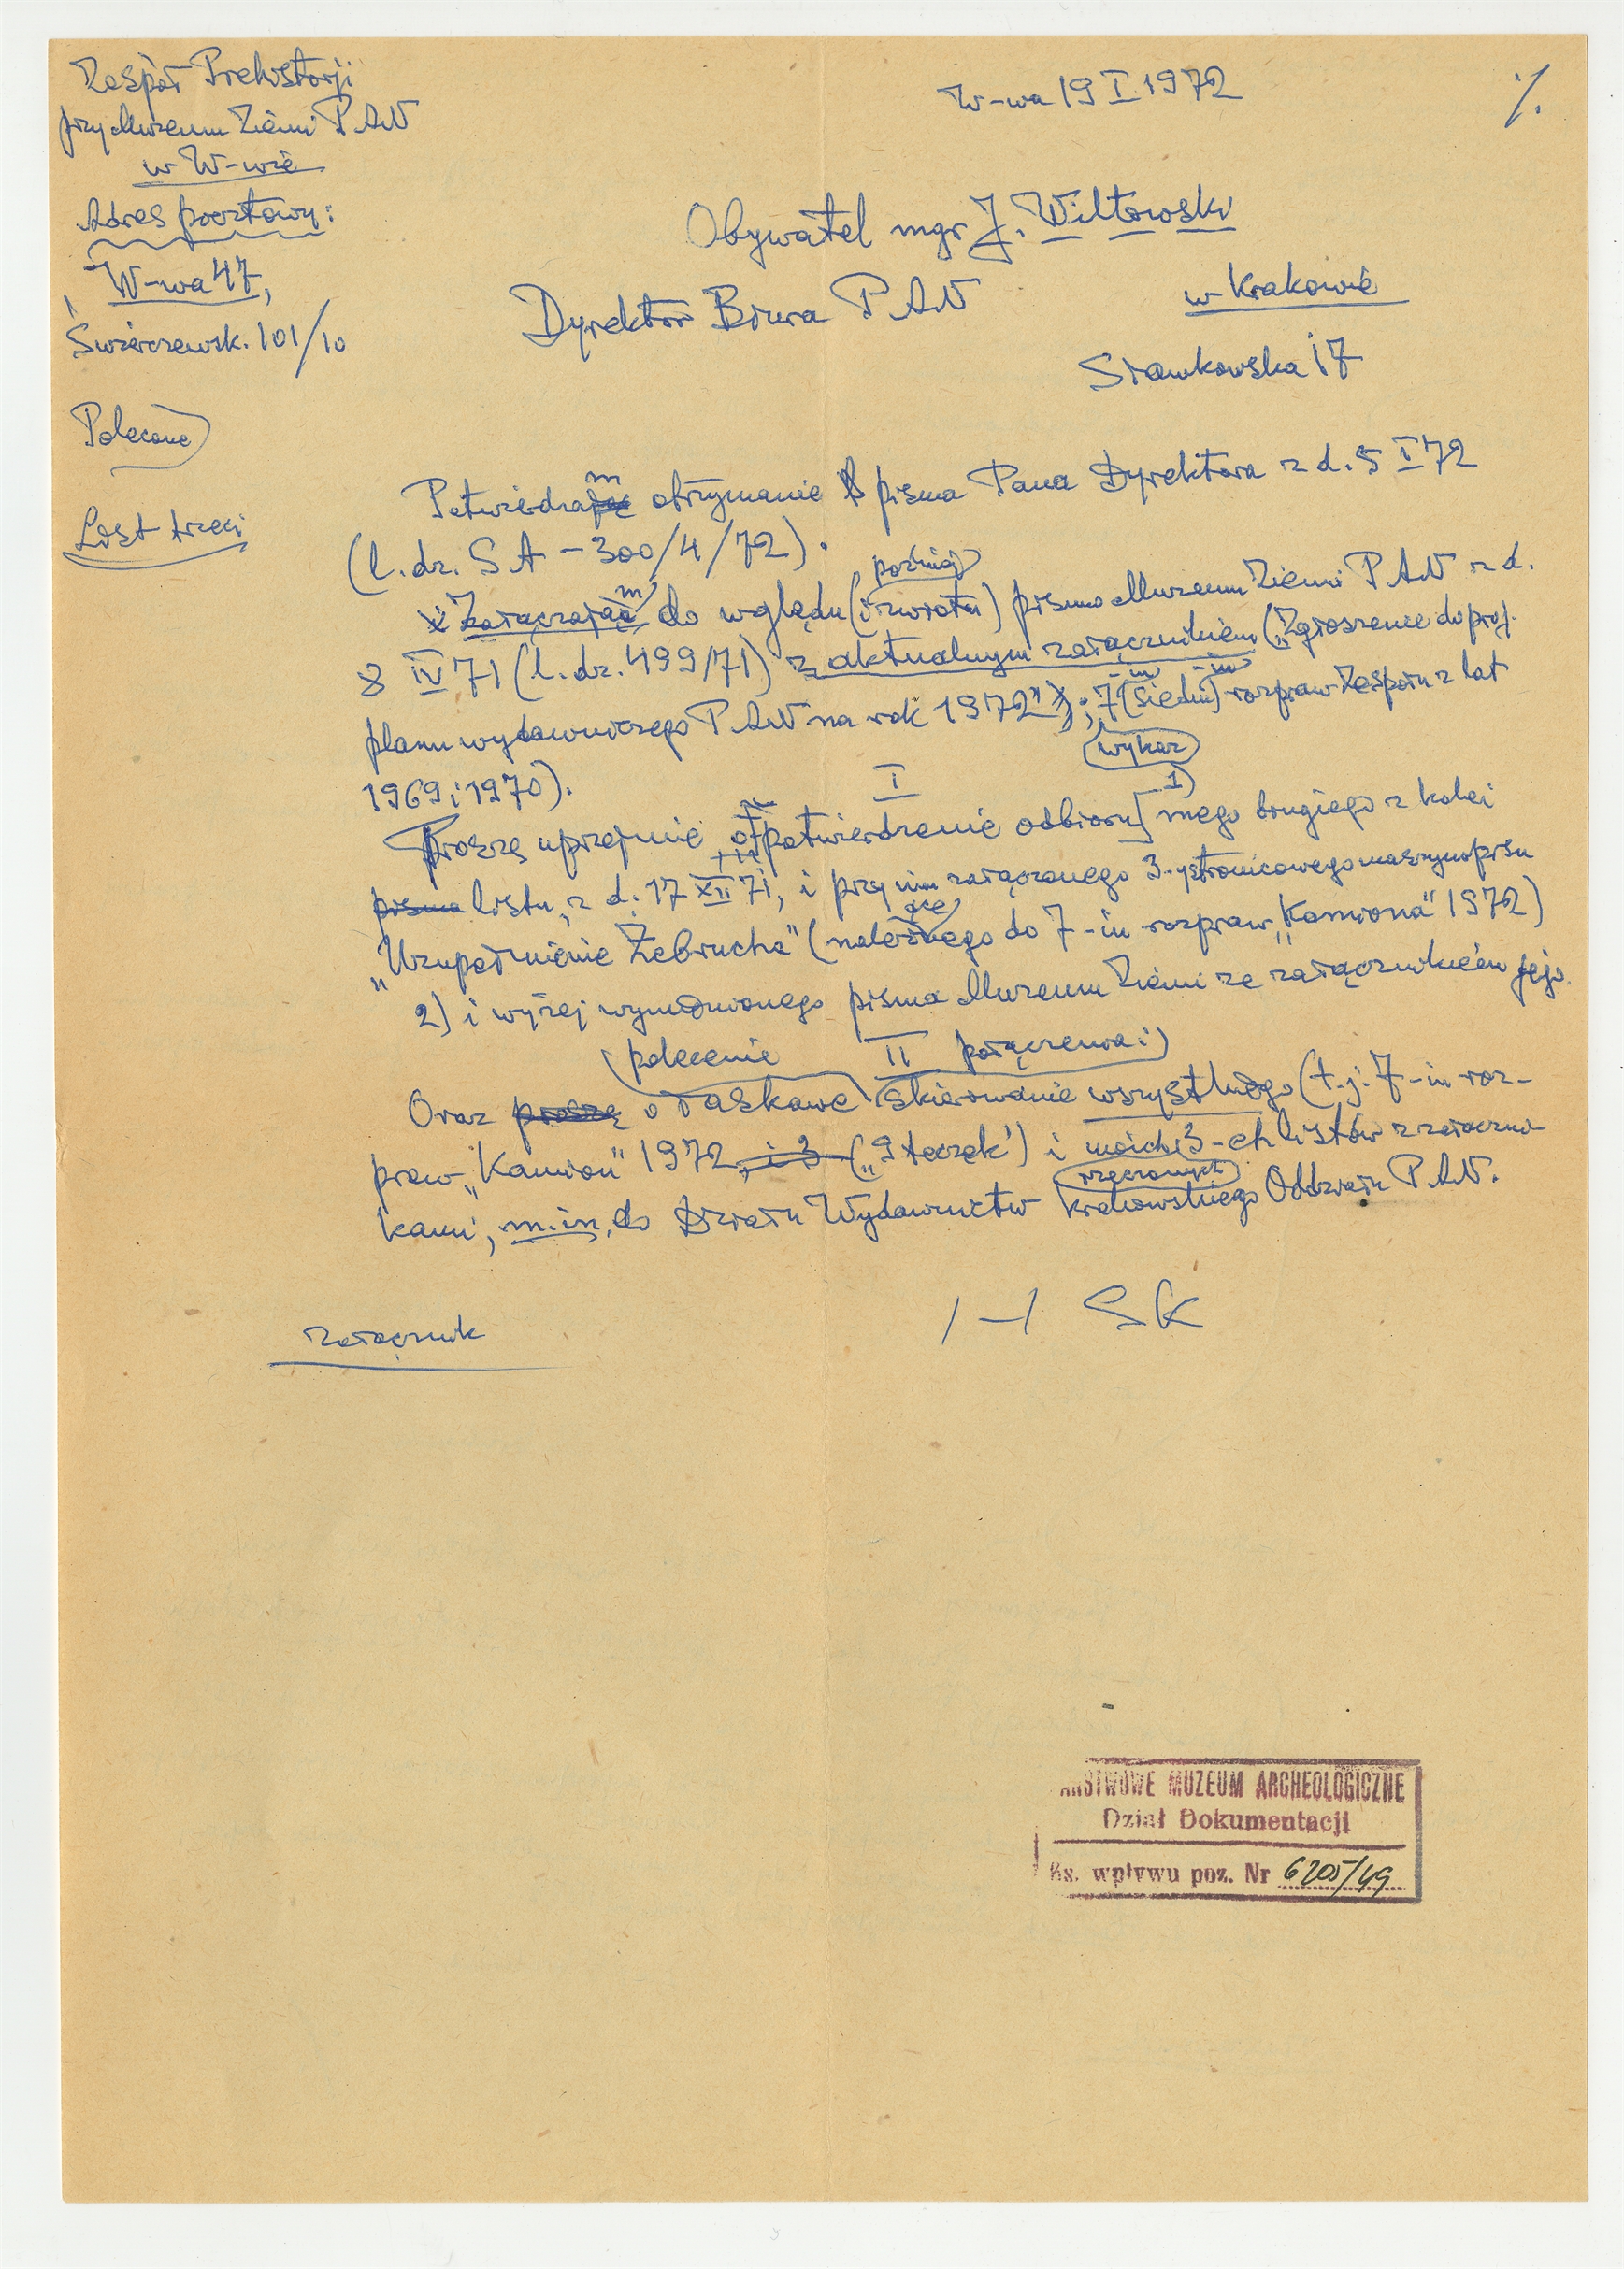 Zespół Prehistorji
przy Muzeum Ziemi PAN
w W-wie
Adres pocztowy:
W-wa 47,
Świerczewsk. 101/10
Polecone
List trzeci
W-wa 19 I 1972
%
Obywatel mgr J. Wiltowski
Dyrektor Biura PAN
w Krakowie
Sławkowska 17
m
Potwierdzając otrzymanie pisma Pana Dyrektora z d. 5 I 72
(l. dz. SA – 300/4/72).
m później
Załączając do wglądu (i zwrotu) pismo Muzeum Ziemi PAN z d.
8 IV 71 (l. dz. 499/71) z aktualnym załącznikiem („Zgłoszenie do proj.
planu wydawniczego PAN na rok 1972"); 7 (siedmi) rozpraw Zespołu z lat
wykaz
1969 i 1970).
I
1)
Proszę uprzejmie o potwierdzenie odbioru mego drugiego z kolei
pisma listu, z d. 17 XII 71, i przy nim załączonego 3-ystronicowego maszynopisu
„Uzupełnienie Zebrucha" (należnego do 7-iu rozpraw „Kamiona" 1972)
2) i wyżej wymienionego pisma Muzeum Ziemi ze załącznikiem jego.
polecenie II połączenia i
Oraz proszę o łaskawe skierowanie wszystkiego (t.j. 7-iu roz-
praw „Kamion" 1972, i 3 („9 teczek") i moich 3-ch listów z załączni-
rzeczonych
kami, m.in. do Działu Wydawnictw krakowskiego Oddziału PAN.
/–/ SK
załącznik
PAŃSTWOWE MUZEUM ARCHEOLOGICZNE
Dział Dokumentacji
Ks. wpływu poz. Nr 6205/49